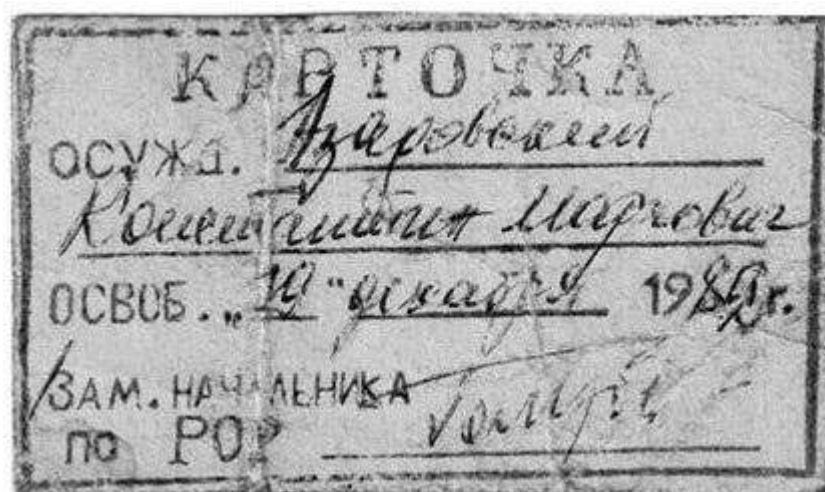 КАРТОЧКА
ОСУЖД. Азаровский
Константин Маркович
ОСВОБ. „19" декабря 1989г.
ЗАМ. НАЧАЛЬНИКА
ПО РОР